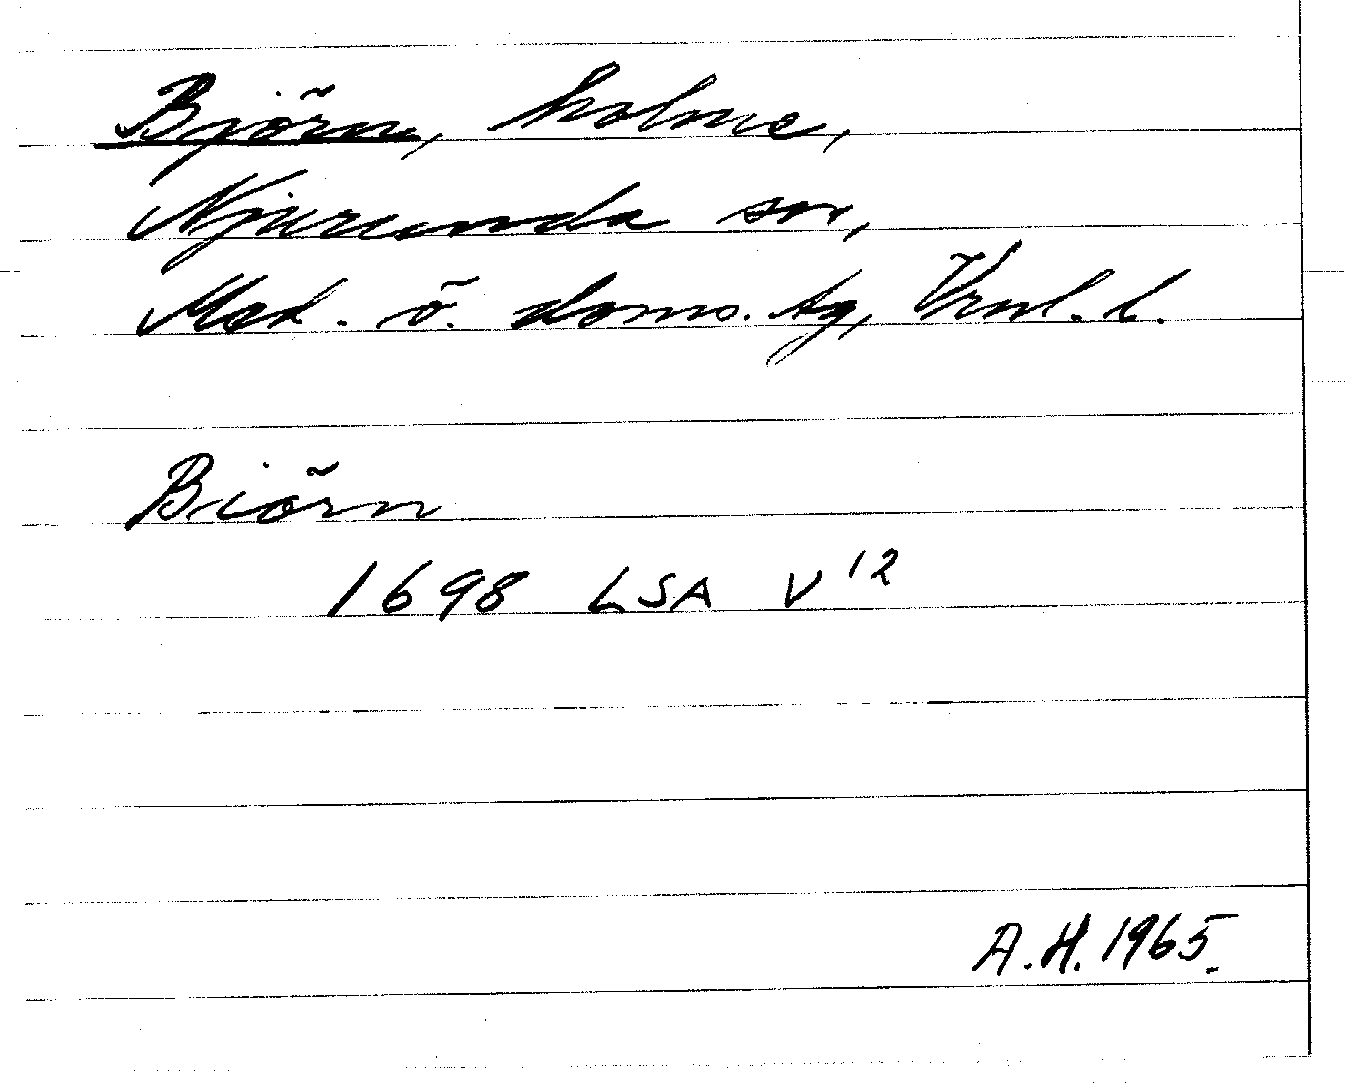 Björn, holme,
Njurunda sn,
Med. ö. doms. tg, Vrnl. l.
Biörn
1698 LSA V 12
A.H. 1965.